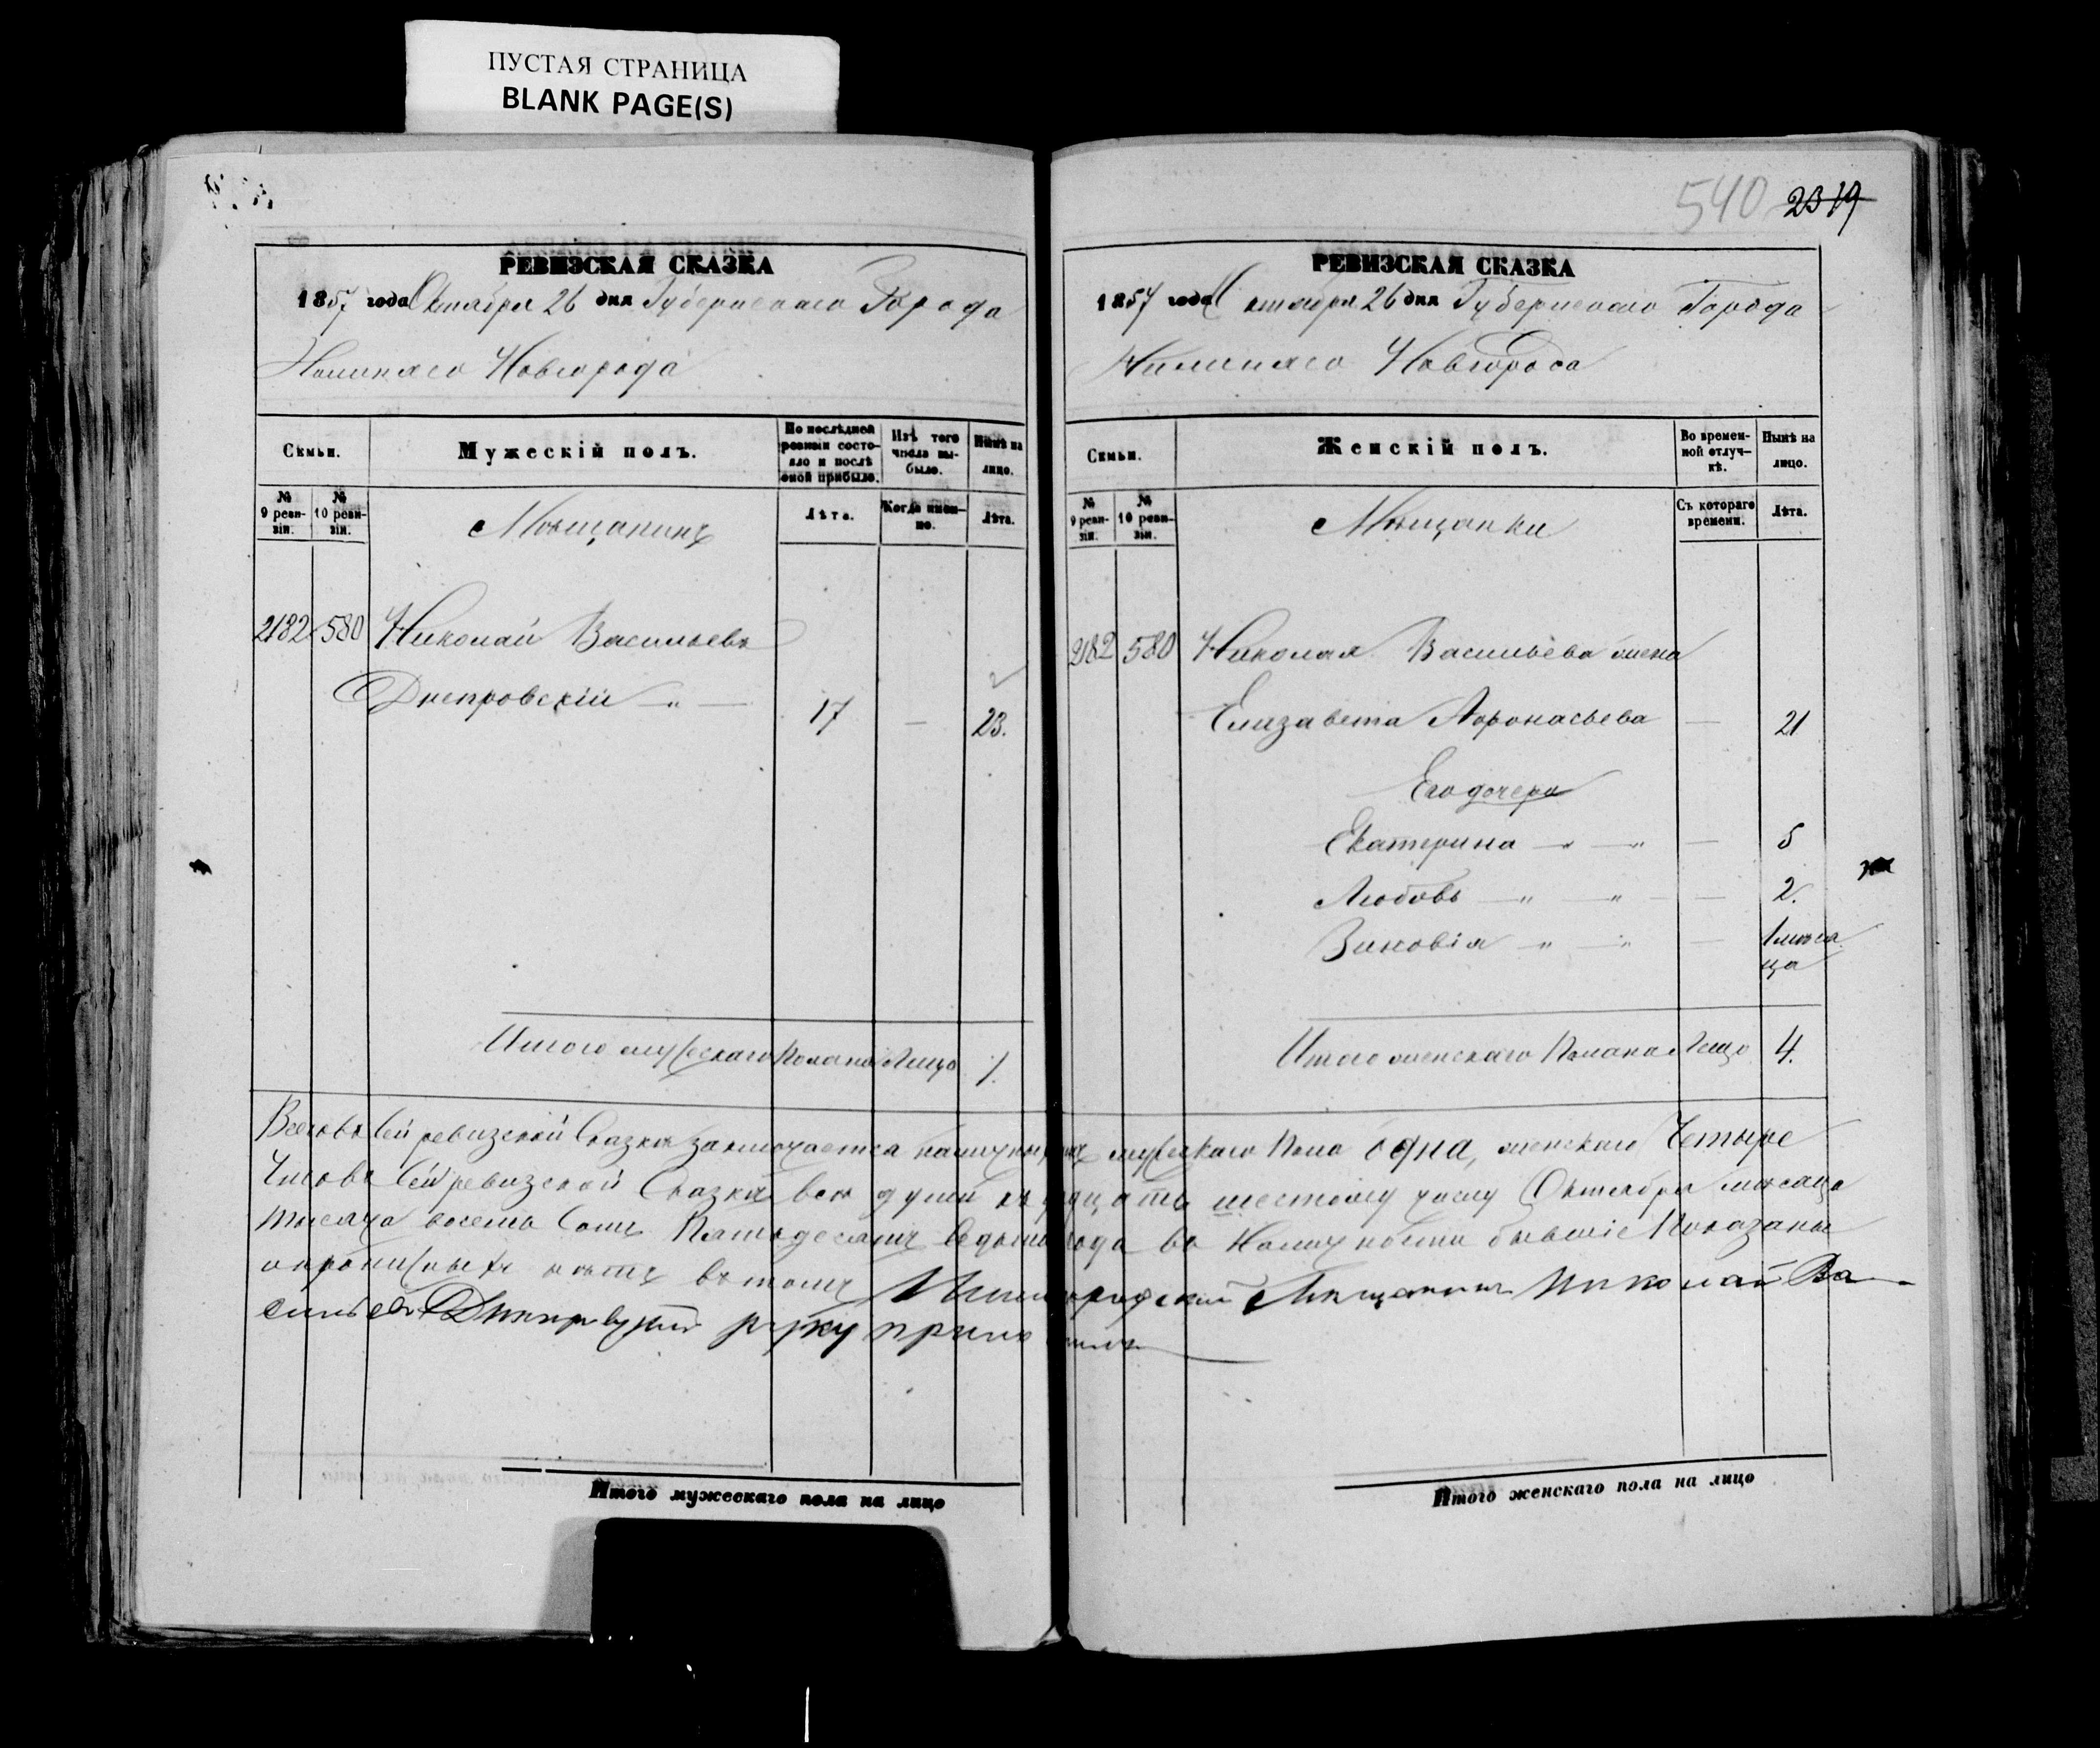 ПУСТАЯ СТРАНИЦА
BLANK PAGE(S)
РЕВИЗСКАЯ СКАЗКА
1857 года Октября 26 дня Губернскаго Города
Нижняго Новгорода
Семьи.
Мужескій полъ.
По послѣдней ревизіи состояло и послѣ оной прибыло.
Изъ того числа выбыло.
Нынѣ на лицо.
№ 9 ревизіи.
№ 10 ревизіи.
Мѣщанинъ
Лѣта.
Когда именно.
Лѣта.
2182 580 Николай Васильевъ
Днепровскій 17 — 23.
Итого мужескаго пола на Лицо 1.
540 2319
РЕВИЗСКАЯ СКАЗКА
1857 года Октября 26 дня Губернскаго Города
Нижняго Новгорода
Семьи.
Женскій полъ.
Во временной отлучкѣ.
Нынѣ на лицо.
№ 9 ревизіи.
№ 10 ревизіи.
Мѣщанки
Съ котораго времени.
Лѣта.
2182 580 Николая Васильева жена
Елизавета Афонасьева — 21
Его дочери
Екатерина — 5
Любовь — 2.
Зиновія — 1 мѣся
ца
Итого женскаго Пола на Лицо 4.
Всего въ Сей ревизской Сказкѣ заключается наличныхъ мужескаго Пола одна, женскаго Четыре
Что въ Сей ревизской Сказкѣ все души къ шестому числу Октября мѣсяца
тысяча восемь Сотъ Пятьдесятъ года въ бывшіе Показаны
и нѣтъ въ томъ Мѣщанинъ Николай Ва
сильевъ руку приложилъ
Итого мужескаго пола на лицо
Итого женскаго пола на лицо